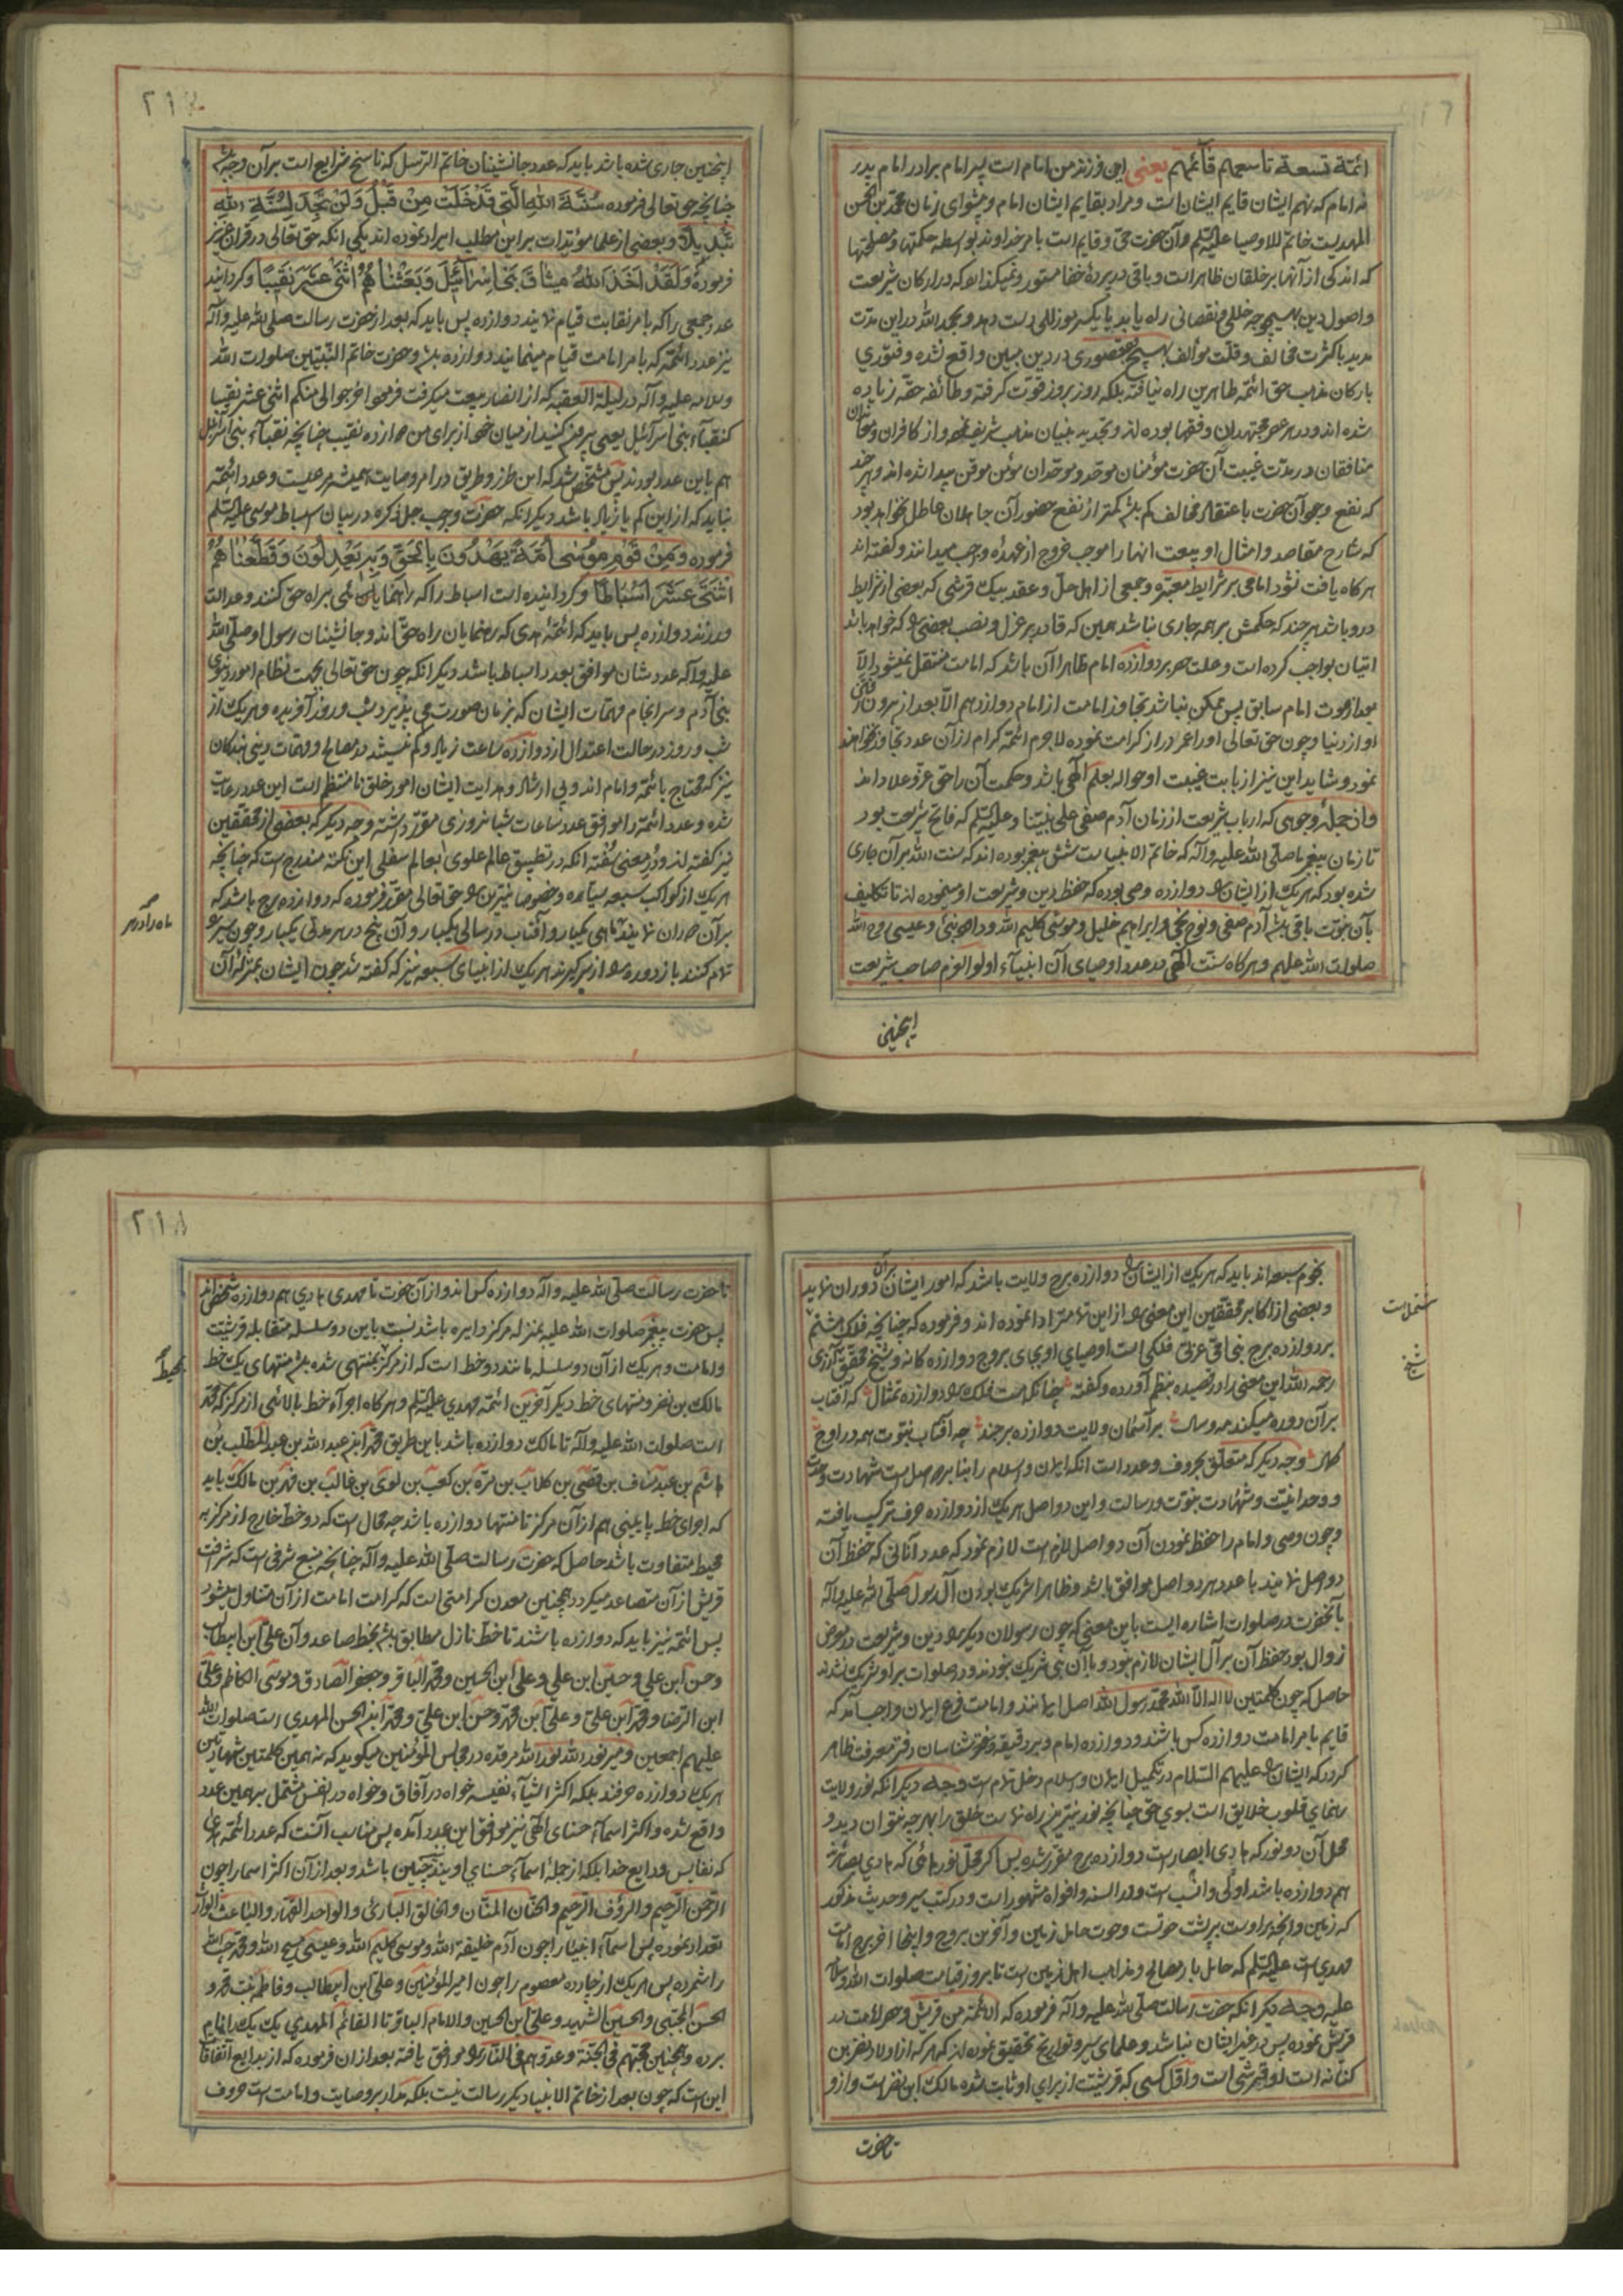 ائمة تسعة تاسعهم قائمهم یعنی این فرزند من امام است پسر امام برادر امام پدر
نه امام که نهم ایشان قایم ایشان است و مراد بقایم ایشان امام و پیشوای زمان محمد بن الحسن
المهدیست خاتم الاوصیا علیه السلم و آن حضرت حی و قایم است بامر خداوند بواسطه حکمتها و مصلحتها
که اندکی از آنها بر خلقان ظاهر است و باقی در پرده خفا مستور و نمیگذارد که در ارکان شریعت
و اصول دین بهیچوجه خللی و نقصانی راه یابد یا یکسر موزللی دست دهد و بحمد الله در این مدت
مدید با کثرت مخالف و قلت موالف بهیچ قصوری در دین مبین واقع نشده و فتوری
بارکان مذهب حق ائمه طاهرین راه نیافته بلکه روز بروز قوت گرفته و طائفه حقه زیاده
شده اند و در هر عصر مجتهدان و فقها بوده اند و تجدید بنیان مذهب شریف نموده و از کافران و معاندان
منافقان در مدت غیبت آن حضرت مؤمنان موحد و موحدان مؤمن موقن پیدا شده اند و هر چند
که نفع وجود آن حضرت باعتقاد مخالف کم باشد کمتر از نفع حضور آن جاهلان عاطل نخواهد بود
که شارح مقاصد و امثال او بیعت انها را موجب خروج از عهده واجب میدانند و گفته اند
هرگاه یافت نشود امامی بر شرایط معتبره و جمعی از اهل حل و عقد بیک قرشی که بعضی از شرایط
درو باشد هر چند که حکمش بر همه جاری نباشد همین که قادر بر عزل و نصب بعضی که خواهد باشد
اتیان بواجب کرده است و علت حصر بر دوازده امام ظاهرا آن باشد که امامت منتقل نمیشود الا
بعد از موت امام سابق پس ممکن نباشد تجاوز امامت از امام دوازدهم الا بعد از بیرون رفتن
او از دنیا و چون حق تعالی او را عمر دراز کرامت نموده لاجرم ائمه کرام از آن عدد تجاوز نخواهند
نمود و شاید این نیز از بابت غیبت او حواله بعلم الهی باشد و حکمت آن را حق عز و علا داند
و از جمله وجوهی که ارباب شریعت از زمان آدم صفی علی نبینا و علیه السلم که فاتح شریعت بود
تا زمان پیغمبر ما صلی الله علیه و آله که خاتم الانبیاست شش پیغمبر بوده اند که سنت الله بر آن جاری
شده بود که هریک از ایشان را دوازده وصی بوده که حفظ دین و شریعت او مینموده اند تا تکلیف
بآن نبوت باقی باشد آدم صفی و نوح نجی و ابراهیم خلیل و موسی کلیم الله و داود نبی و عیسی روح الله
صلوات الله علیهم و هرگاه سنت الهی در عدد اوصیای آن انبیاء اولو العزم صاحب شریعت
اینچنین
۲۱۷
اینچنین جاری شده باشد باید که عدد جانشینان خاتم الرسل که ناسخ شرایع است بر آن وجه باشد
چنانچه حق تعالی فرموده سُنَّةَ اللهِ الَّتِی قَدْ خَلَتْ مِنْ قَبْلُ وَلَنْ تَجِدَ لِسُنَّةِ اللهِ
تَبْدِیلًا و بعضی از علما مؤیدات بر این مطلب ایراد نموده اند یکی انکه حق تعالی در قرآن عزیز
فرموده وَلَقَدْ اَخَذَ اللهُ مِیثَاقَ بَنِی اِسْرَآئِیلَ وَبَعَثْنَا مِنْهُمُ اثْنَی عَشَرَ نَقِیبًا و گردانید
عدد جمعی را که بامر نقابت قیام نمایند دوازده پس باید که بعد از حضرت رسالت صلی الله علیه و آله
نیز عدد ائمه که بامر امامت قیام مینمایند دوازده باشد و حضرت خاتم النبیین صلوات الله
و سلامه علیه و آله در لیلة العقبه که از انصار بیعت میگرفت فرمود اخرجوا الی منکم اثنی عشر نقیبا
کنقباء بنی اسرآئیل یعنی بیرون کنید از میان خود از برای من دوازده نقیب چنانچه نقباء بنی اسرائیل
هم باین عدد بودند پس مشخص شد که این طرز و طریق در امر وصایت همیشه مرعیست و عدد ائمه
نباید که از این کم یا زیاد باشد دیگر انکه حضرت واجب جل ذکره در بیان اسباط موسی علیه السلم
فرموده وَمِنْ قَوْمِ مُوسٰی اُمَّةٌ یَهْدُونَ بِالْحَقِّ وَبِهِ یَعْدِلُونَ وَقَطَّعْنَاهُمُ
اثْنَتَی عَشْرَةَ اَسْبَاطًا و گردانیده است اسباط را که راهنمایان بودند براه حق کنند و عدالت
ورزند دوازده پس باید که ائمه هدی که رهنمایان راه حق اند و جانشینان رسول او صلی الله
علیه و آله عددشان موافق بعدد اسباط باشد دیگر انکه چون حق تعالی بجهت نظام امور دنیوی
بنی آدم و سرانجام مهمات ایشان که بزمان صورت می پذیرد شب و روز آفریده و هریک از
شب و روز در حالت اعتدال از دوازده ساعت زیاد و کم نمیشد در مصالح و مهمات دینی بندگان
نیز که محتاج بائمه و امام اند و بی ارشاد و هدایت ایشان امور خلق نامنتظم است این عدد رعایت
شده و عدد ائمه را موافق عدد ساعات شبانروزی مقرر داشته وجه دیگر که بعضی از محققین
نیز گفته اند و در معنی سفته انکه در تطبیق عالم علوی بعالم سفلی این نکته مندرج است که چنانچه
هریک از کواکب سبعه سیاره و خصوصا نیرین را حق تعالی مقرر فرموده که دوازده برج باشد که
بر آن دوران نمایند ماهی یکبار و آفتاب در سالی یکبار و آن پنج در هر مدتی یکبار و چون سیر
تمام کنند باز دوره را از سر گیرند هریک از انبیای سبعه نیز که گفته شد چون ایشان بمنزله آن
نجوم سبعه اند باید که هریک از ایشان را دوازده برج ولایت باشد که امور ایشان بران دوران نماید
و بعضی از اکابر محققین این معنی را از این تمامتر ادا نموده اند و فرموده که چنانچه فلک هشتم
بر دوازده برج
رحمه الله این معنی را در قصیده بنظم آورده و گفته چنانکه هست فلک را دوازده تمثال که آفتاب
بر آن دوره میکند مه و سال بر آسمان ولایت دوازده برجند چه آفتاب نبوت همه در اوج
کمال وجه دیگر که متعلق بحروف و عدد است انکه ایمان و اسلام را بنا بر دو اصل است شهادت وحدت
و وحدانیت و شهادت بنبوت و رسالت و این دو اصل هریک از دوازده حرف ترکیب یافته
و چون وصی و امام را حفظ نمودن آن دو اصل لازم است لازم نمود که عدد آنانی که حفظ آن
دو اصل نمایند با عدد هر دو اصل موافق باشد و ظاهرا شریک بودن آل رسول صلی الله علیه و آله
بآنحضرت در صلوات اشاره ایست باین معنی که چون رسولان دیگر را دین و شریعت در معرض
زوال بود حفظ آن بر آل ایشان لازم نبود و با آن نبی شریک نبودند و در صلوات بر او شریک نشدند
حاصل که چون کلمتین لا اله الا الله محمد رسول الله اصل ایمانند و امامت فرع ایمان واجب آمد که
قایم بامر امامت دوازده کس باشند و دوازده امام
گردد که ایشان را علیهم السلام در تکمیل ایمان و اسلام دخل تمام است وجه دیگر انکه نور ولایت
رهنمای قلوب خلایق است بسوی حق چنانچه نور نیرین راه نماست خلق را بهرچه بتوان دید و
محل آن دو نور که هادی ابصارست دوازده برج مقرر شده پس اگر محل نورهائی که هادی بصائرند
هم دوازده باشد اولی و انسب است و در السنه و افواه مشهور است و در کتب سیر و حدیث مذکور
که زمین و انچه بر اوست بر پشت حوتست و حوت حامل زمین و آخرین بروج و اینجا اخر برج امامت
مهدیست علیه السلم که حامل بار مصالح و مذاهب اهل زمین است تا بروز قیامت صلوات الله و سلامه
علیه وجه دیگر انکه حضرت رسالت صلی الله علیه و آله فرموده که الائمة من قریش و حصر امامت در
قریش نموده پس در غیر ایشان نباشد و علمای سیر و تواریخ تحقیق نموده اند که هر که از اولاد نضر بن
کنانه است او قرشی است و اول کسی که قریشیت از برای او ثابت شده مالک ابن نضر است و ازو
تا حضرت
۲۱۸
تا حضرت رسالت صلی الله علیه و آله دوازده کس اند و از آن حضرت تا مهدی هادی هم دوازده شخص اند
پس حضرت پیغمبر صلوات الله علیه بمنزله مرکز دایره باشد نسبت باین دو سلسله متقابله قرشیت
و امامت و هریک از آن دو سلسله مانند دو خط است که از مرکز بمنتهی شده باشد منتهای یک خط
مالک بن نضر و منتهای خط دیگر آخرین ائمه مهدی علیه السلم و هرگاه اجزاء خط بالائی از مرکز که محمد
است صلوات الله علیه و آله تا مالک دوازده باشد باین طریق محمد ابن عبد الله بن عبد المطلب بن
هاشم بن عبد مناف بن قصی بن کلاب بن مرة بن کعب بن لوی بن غالب بن فهر بن مالک باید
که اجزای خط پایینی هم از آن مرکز تا منتها دوازده باشد چه محال است که دو خط خارج از مرکز به
محیط متفاوت باشد حاصل که حضرت رسالت صلی الله علیه و آله چنانچه منبع شرفی است که شرافت
قریش از آن متصاعد میگردد همچنین معدن کرامتی است که کرامت امامت از آن متناول میشود
پس ائمه نیز باید که دوازده باشند تا خط نازل مطابق باشد بخط صاعد و آن علی ابن ابیطالب
و حسن ابن علی و حسین ابن علی و علی ابن الحسین و محمد الباقر و جعفر الصادق و موسی الکاظم و علی
ابن الرضا و محمد ابن علی و علی ابن محمد و حسن ابن علی و محمد ابن الحسن المهدی است صلوات الله
علیهم اجمعین و میر نور الله نور الله مرقده در مجالس المؤمنین میگوید که نه همین کلمتین شهادتین
هریک دوازده حرفند بلکه اکثر اشیاء نفیسه خواه در آفاق و خواه در انفس مشتمل بر همین عدد
واقع شده و اکثر اسماء حسنای الهی نیز موافق این عدد آمده پس مناسب آنست که عدد ائمه هدی
که نفایس ودایع خدا بلکه از جمله اسماء حسنای اویند چنین باشد و بعد از آن اکثر اسما را چون
الرحمن الرحیم و الرؤف الرحیم و الحنان المنان و الخالق الباری و الواحد القهار و الباعث الوارث
تعداد نموده پس اسماء انبیا را چون آدم خلیفة الله و موسی کلیم الله و عیسی مسیح الله و محمد حبیب الله
را شمرده پس هریک از چهارده معصوم را چون امیر المؤمنین و علی ابن ابیطالب و فاطمه بنت محمد و
الحسن المجتبی و الحسین الشهید و علی ابن الحسین و الامام الباقر تا القائم المهدی یک یک را نام
برده و همچنین محبهم فی الجنة و عدوهم فی النار را موافق یافته بعد از ان فرموده که از بدایع اتفاقات
این است که چون بعد از خاتم الانبیا دیگر رسالت نیست بلکه مدار بر وصایت و امامت است حروف